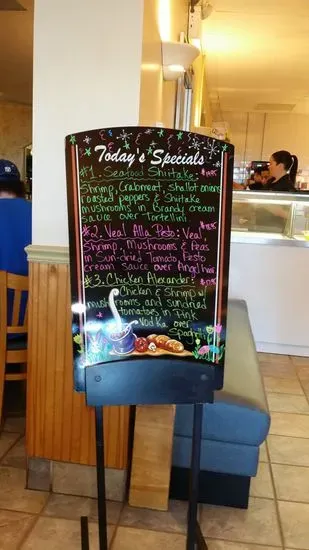 Today's Specials
#1. Seafood Shiitake:
Shrimp, Crabmeat, shallot onions
roasted peppers & Shiitake
mushrooms in Brandy cream
sauce over Tortellini
#2. Veal Alla Pesto: Veal
Shrimp, Mushrooms & Peas
in Sun-dried Tomato, Pesto
cream sauce over Angel hair
#3. Chicken Alexander:
Chicken & Shrimp w/
mushrooms and sundried
tomatoes in Pink
Vodka over
Spaghetti